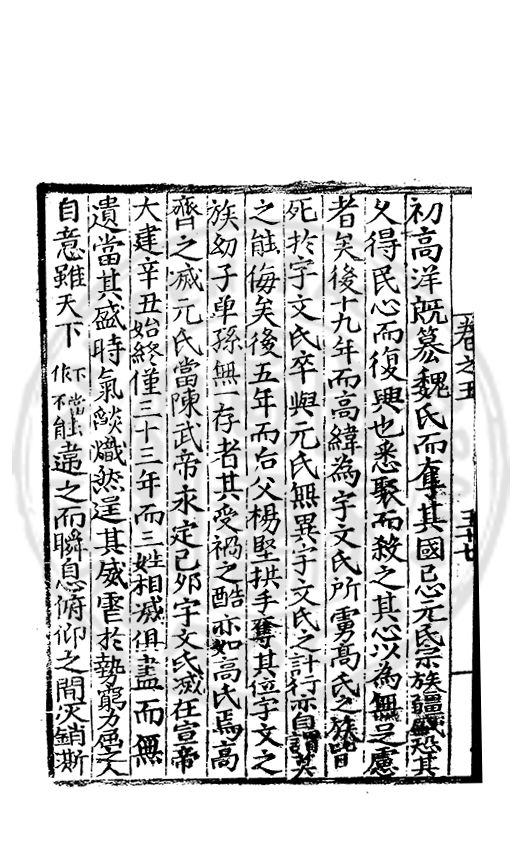 卷之五　五十七
初高洋既篡魏氏而奪其國忌元氏宗族彊盛恐其
乆得民心而復興也悉聚而殺之其意以為無足慮
者矣後十九年而高緯為宇文氏所虜髙氏之族皆
死於宇文氏卒與元氏無異宇文氏之計行亦自謂莫
之能侮矣後五年而后父楊堅拱手奪其位宇文之
族幼子单孫無一存者其受禍之酷亦如高氏焉高
齊之滅元氏當陳武帝永定己夘宇文氏滅在宣帝
大建辛丑始終僅三十三年而三姓相滅俱盡而無
遺當其盛時氣燄熾然逞其威虐於勢窮力屈之
自意雖天下下當作不能違之而瞬息俯仰之間灾銷澌